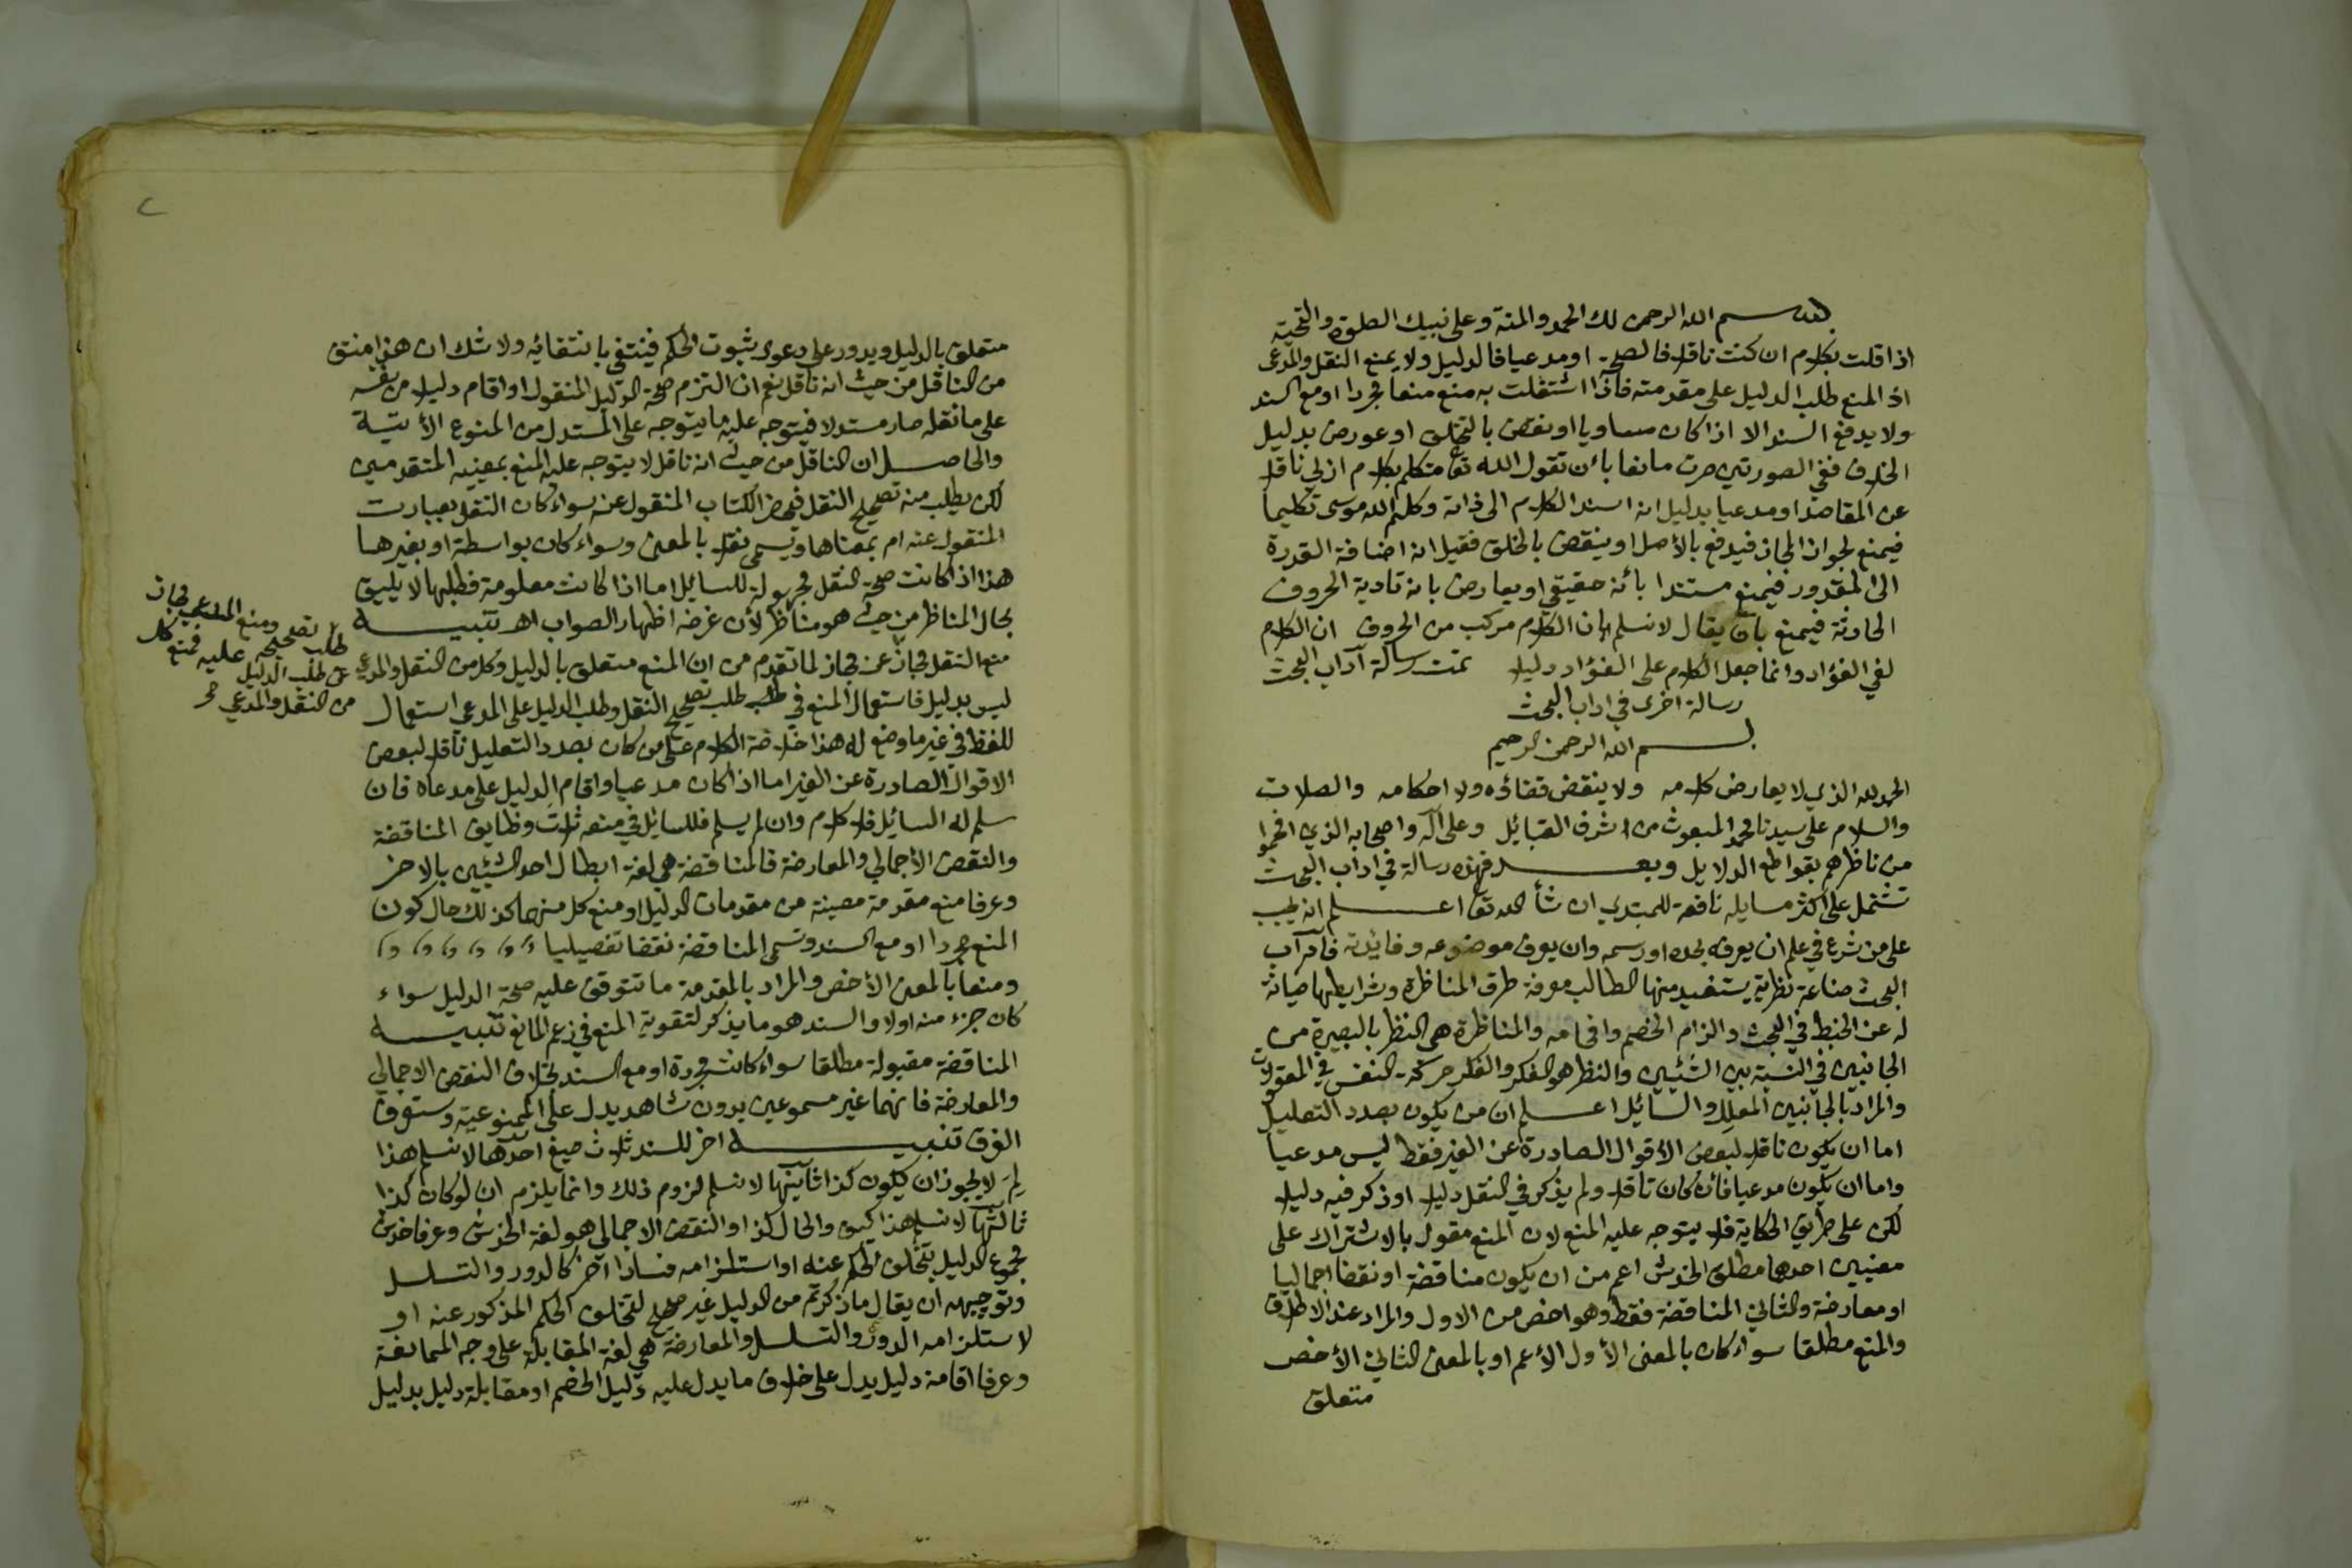 بسم الله الرحمن لك الحمد والمنة وعلى نبيك الصلوة والتحية
اذا قلت بكلام ان كنت ناقلا فالصحة او مدعيا فالدليل ولا يمنع النقل والمدعى
اذ المنع طلب الدليل على مقدمته فاذا اشتغلت به منع منعا مجردا او مع السند
ولا يدفع السند الا اذا كان مساويا او نقض بالتخلف او عورض بدليل
الخلاف ففي الصورتين صرت مانعا بأن تقول الله تعا متكلم بكلام ازلي ناقلا
عن المقاصد او مدعيا بدليل انه اسند الكلام الى ذاته وكلم الله موسى تكليما
فيمنع لجواز المجاز فيدفع بالأصل او ينقض بالخلق فقيل انه اضافة القدرة
الى المقدور فيمنع مستندا بأنه حقيقي او يعارض بانه تادية الحروف
الحادثة فيمنع بان يقال لا نسلم بان الكلام مركب من الحروف ان الكلام
لفي الفؤاد وانما جعل الكلام على الفؤاد دليلا تمت رسالة آداب البحث
رسالة اخرى في اداب البحث
بسم الله الرحمن الرحيم
الحمد لله الذي لا يعارض كلامه ولا ينقض قضاؤه ولا احكامه والصلات
والسلام على سيدنا محمد المبعوث من اشرف القبائل وعلى آله واصحابه الذي افحموا
من ناظرهم بقواطع الدلايل وبعد فهذه رسالة في اداب البحث
تشتمل على اكثر مسايله نافعة للمبتدي ان شأ الله تعا اعلم انه يجب
على من شرع في علم ان يعرفه بحده او رسمه وان يعرف موضوعه وفايدته فآداب
البحث صناعة نظرية يستفيد منها الطالب معرفة طرق المناظرة وشرايطها صيانة
له عن الخبط في البحث والزام الخصم وافحامه والمناظرة هي النظر بالبصيرة من
الجانبين في النسبة بين الشئيين والنظر هو الفكر والفكر حركة النفس في المعقولات
والمراد بالجانبين المعلل والسائل اعلم ان من يكون بصدد التعليل
اما ان يكون ناقلا لبعض الأقوال الصادرة عن الغير فقط ليس مدعيا
واما ان يكون مدعيا فأن كان ناقلا ولم يذكر في النقل دليلا او ذكر فيه دليلا
لكن على طريق الحكاية فلا يتوجه عليه المنع لان المنع مقول بالاشتراك على
معنيين احدهما مطلق الخدش اعم من ان يكون مناقضة او نقضا اجماليا
او معارضة والثاني المناقضة فقط وهو اخص من الاول والمراد عند الاطلاق
والمنع مطلقا سواء كان بالمعنى الأول الأعم او بالمعنى الثاني الأخص
متعلق
متعلق بالدليل ويدور على دعوى ثبوت الحكم فينتفي بانتفائه ولا شك ان هذا منتف
من الناقل من حيث انه ناقل نعم ان التزم صحة الدليل المنقول او اقام دليلا من نفسه
على ما نقله صار مستدلا فيتوجه عليه ما يتوجه على المستدل من المنوع الأتية
والحاصل ان الناقل من حيث انه ناقل لا يتوجه عليه المنع بمعنييه المتقدمين
لكن يطلب منه تصحيح النقل فيحضر الكتاب المنقول عنه سواء كان النقل بعبارت
المنقول عنه ام بمعناها ويسمى نقلا بالمعنى وسواء كان بواسطة او بغيرها
هذا اذا كانت صحة النقل مجهولة للسايل اما اذا كانت معلومة فطلبها لا يليق
بحال المناظر من حيث هو مناظر لأن غرضه اظهار الصواب اهـ تنبيه
منع النقل مجاز عن مجاز لما تقدم من ان المنع متعلق بالدليل وكل من النقل والمدعي
ليس بدليل فاستعمال المنع في طلب تصحيح النقل وطلب الدليل على المدعى استعمال
للفظ في غير ما وضع له هذا خلاصة الكلام على من كان بصدد التعليل ناقلا لبعض
الاقوال الصادرة عن الغير اما اذا كان مدعيا واقام الدليل على مدعاه فان
سلم له السائل فلا كلام وان لم يسلم فللسائل في منعه ثلاث وظايف المناقضة
والنقض الأجمالي والمعارضة فالمناقضة هي لغة ابطال احد الشيئين بالاخر
وعرفا منع مقدمة معينة من مقدمات الدليل او منع كل منها كذلك حال كون
المنع مجردا او مع السند وتسمى المناقضة نقضا تفصيليا
ومنعا بالمعنى الأخص والمراد بالمقدمة ما تتوقف عليه صحة الدليل سواء
كان جزء منه اولا والسند هو ما يذكر لتقوية المنع في زعم المانع تنبيه
المناقضة مقبولة مطلقا سواء كانت مجردة او مع السند بخلاف النقض الاجمالي
والمعارضة فانهما غير مسموعين بدون شاهد يدل على الممنوعية وستعرف
الفرق تنبيه اخر للسند ثلاث صيغ احدها لا نسلم هذا
لِمَ لا يجوز ان يكون كذا ثانيها لا نسلم لزوم ذلك وانما يلزم ان لو كان كذا
ثالثها لا نسلم هذا كيف والحال كذا والنقض الاجمالي هو لغة الخدش وعرفا خدش
مجموع الدليل بتخلف الحكم عنه او استلزامه فسادا آخر كالدور والتسلسل
وتوجيهه ان يقال ما ذكرتم من الدليل غير صحيح لتخلف الحكم المذكور عنه او
لاستلزامه الدور والتسلسل والمعارضة هي لغة المقابلة على وجه الممانعة
وعرفا اقامة دليل يدل على خلاف ما يدل عليه دليل الخصم او مقابلة دليل بدليل
ومنع المدعى مجاز
طلب تصحيحه عليه فمنع كل
عن طلب الدليل
من النقل والمدعي